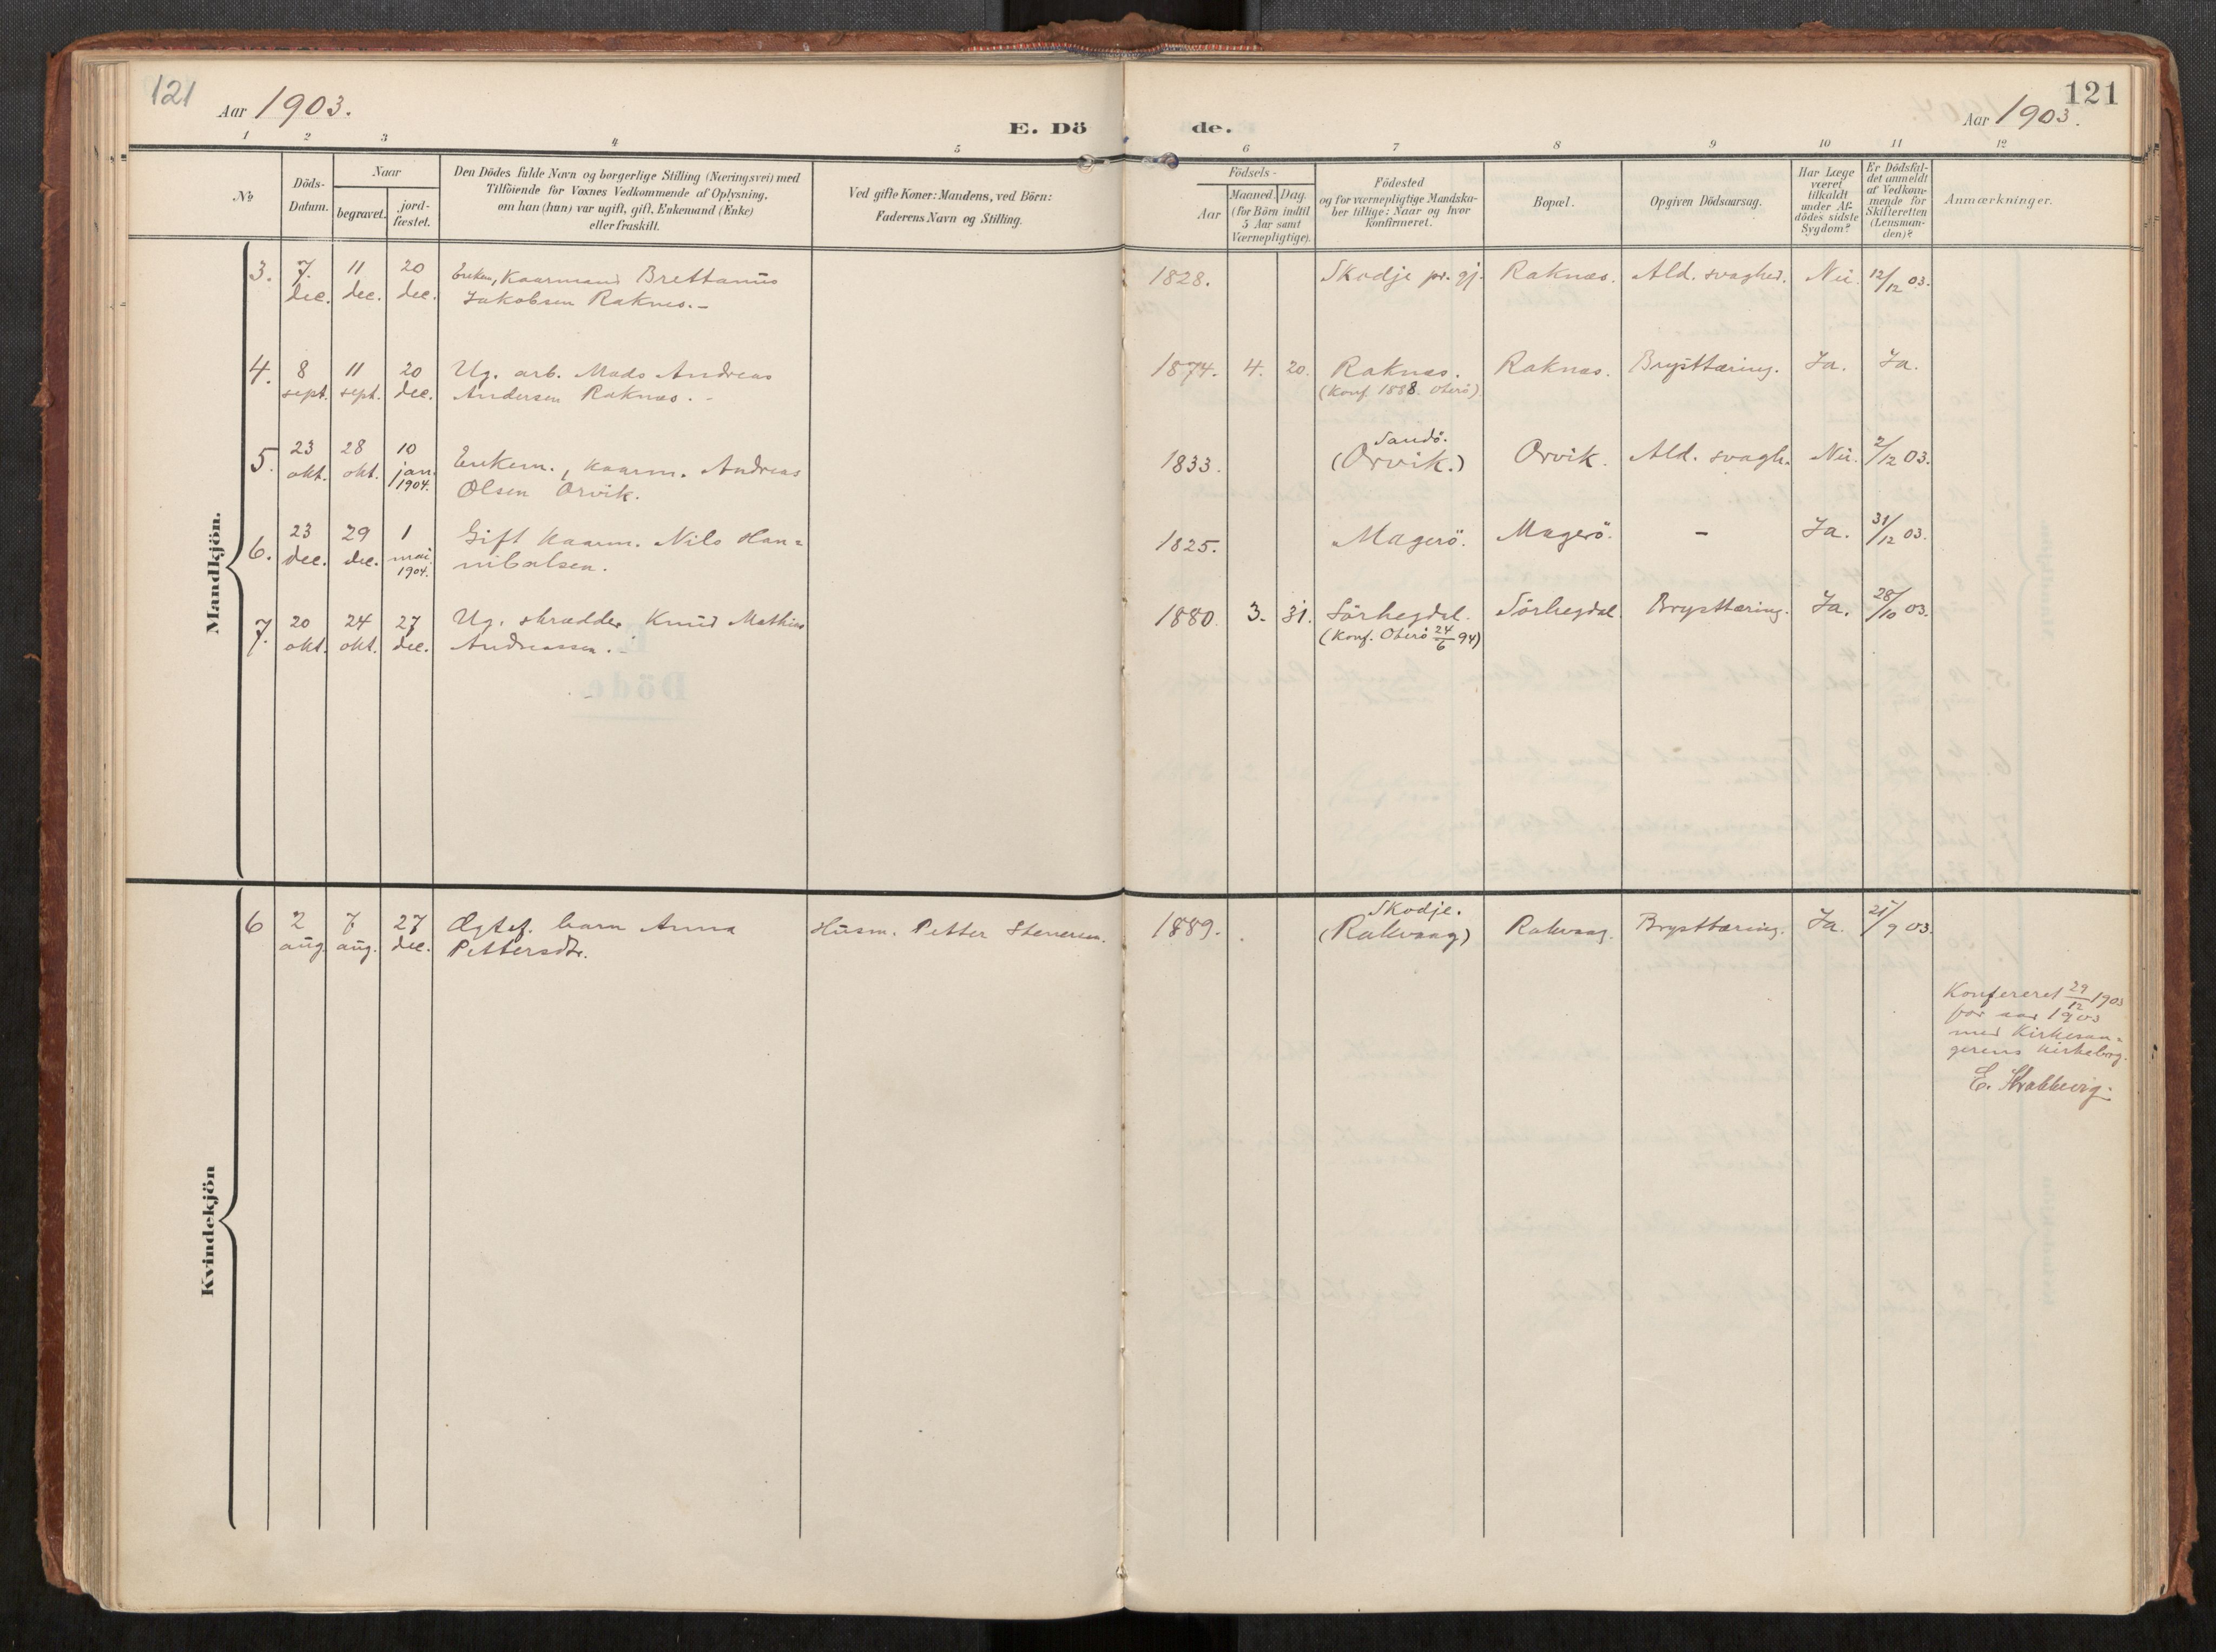 121
Aar 1903.
E. Dö
de.
121
Aar 1903.
1 2 3 4 5 6 7 8 9 10 11 12
No
Döds-
Datum.
Naar
begravet.
jord-
fæstet.
Den Dödes fulde Navn og borgerlige Stilling (Næringsvei) med
Tilföiende for Voxnes Vedkommende af Oplysning,
om han (hun) var ugift, gift, Enkemand (Enke)
eller fraskilt.
Ved gifte Koner: Mandens, ved Börn:
Faderens Navn og Stilling.
Födsels-
Aar
Maaned. Dag.
(for Börn indtil
5 Aar samt
Værnepligtige).
Födested
og for værnepligtige Mandska-
ber tillige: Naar og hvor
konfirmeret.
Bopæl.
Opgiven Dödsaarsag.
Har Læge
været
tilkaldt
under Af-
dödes sidste
Sygdom?
Er Dödsfal-
det anmeldt
af Vedkom-
mende for
Skifteretten
(Lensman-
den)?
Anmærkninger.
Mandkjön.
3. 7. 11 20 Enkem, Kaarmand Brettanus 1828. Skodje pr. gj. Raknæs. Ald. svaghed. Nei. 12/12 03.
dec. dec. dec. Jakobsen Raknes. -
4. 8 11 20 Ug. arb. Mads Andreas 1874. 4. 20. Raknæs. Raknæs. Brysttæring. Ja. Ja.
sept. sept. dec. Andersen Raknæs. - (Konf. 1888. Oterö)
5. 23 28 10 Enkem., kaarm. Andreas 1833. Sandö. Orvik. Ald. svagh. Nei. 2/12 03.
okt. okt. jan. Olsen Orvik. (Orvik.)
1904.
6. 23 29 1 Gift kaarm. Nils Han= 1825. Magerö. Magerö. - Ja. 31/12 03.
dec. dec. mai nibalsen.
1904.
7. 20 24 27 Ug. skrædder Knud Mathias 1880. 3. 31. Sörhegdal. Sörhegdal. Brysttæring. Ja. 28/10 03.
okt. okt. dec. Andreassen. - (Konf. Oterö 24/6 94)
Kvindekjön
6 2 7 27 Ægtef. barn Anna Husm. Petter Stenersen. 1889. Skodje. Rakvaag. Brysttæring. Ja. 25/9 03.
aug. aug. dec. Pettersdtr. (Rakvaag)
Konfereret 29/12 1903
for aar 1903
med Kirkesan=
gerens kirkebog.